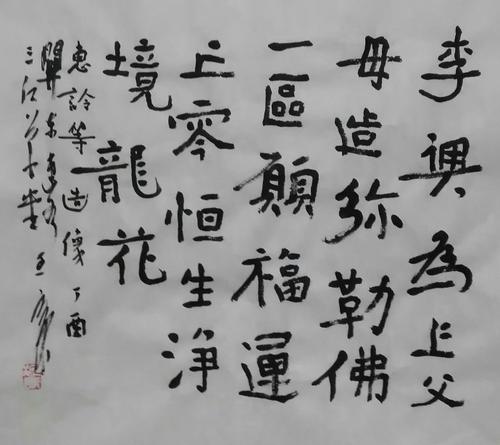 李璵為上父
毋造弥勒佛
一區願福運
上零恒生净
境龍花
惠詅等造像丁酉